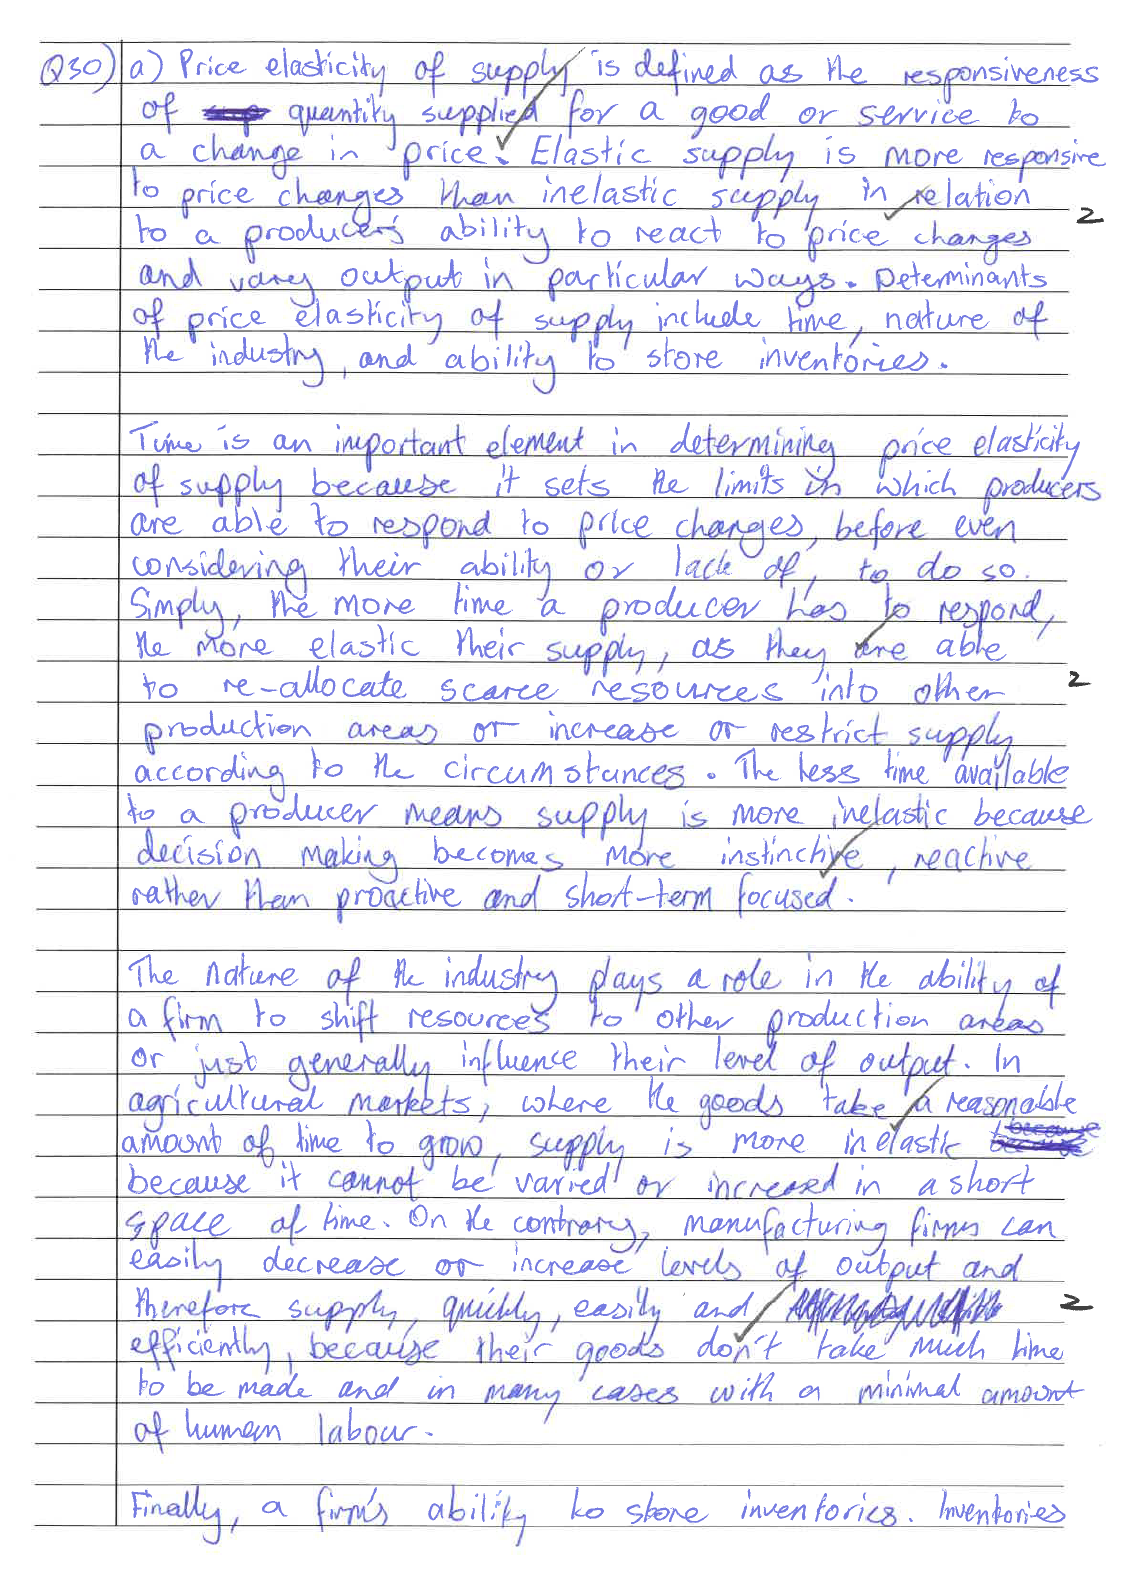 Q30) a) Price elasticity of supply is defined as the responsiveness
of quantity supplied for a good or service to
a change in price. Elastic supply is more responsive
to price changes than inelastic supply in relation
to a producer's ability to react to price changes 2
and vary output in particular ways. Determinants
of price elasticity of supply include time, nature of
the industry, and ability to store inventories.
Time is an important element in determining price elasticity
of supply because it sets the limits in which producers
are able to respond to price changes, before even
considering their ability or lack of, to do so.
Simply, the more time a producer has to respond,
the more elastic their supply, as they are able
to re-allocate scarce resources into other 2
production areas or increase or restrict supply
according to the circumstances. The less time available
to a producer means supply is more inelastic because
decision making becomes more instinctive, reactive
rather than proactive and short-term focused.
The nature of the industry plays a role in the ability of
a firm to shift resources to other production areas
or just generally influence their level of output. In
agricultural markets, where the goods take a reasonable
amount of time to grow, supply is more inelastic
because it cannot be varied or increased in a short
space of time. On the contrary, manufacturing firms can
easily decrease or increase levels of output and
therefore supply, quickly, easily and 2
efficiently, because their goods don't take much time
to be made and in many cases with a minimal amount
of human labour.
Finally, a firm's ability to store inventories. Inventories